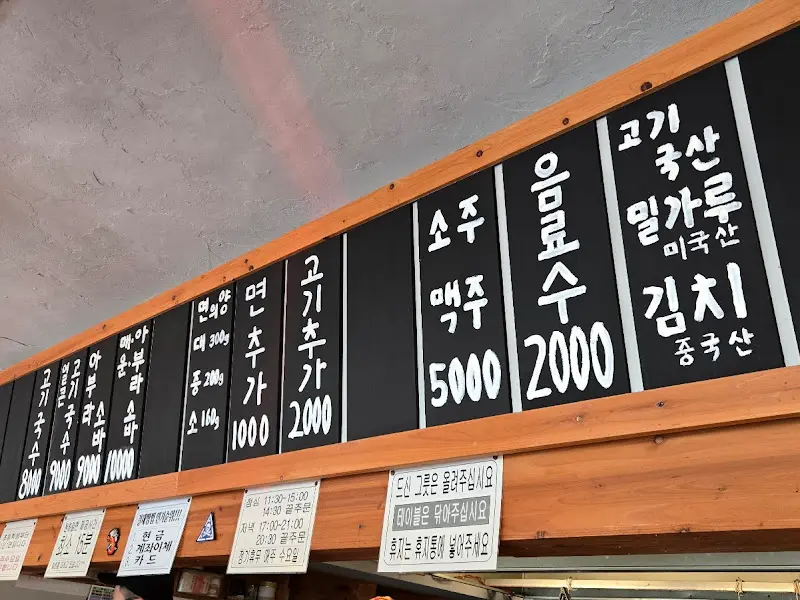 고기국수
8000
얼큰
고기국수
9000
아부라소바
9000
매운
아부라소바
10000
면의양
대 300g
중 200g
소 160g
면추가
1000
고기추가
2000
소주
맥주
5000
음료수
2000
고기
국산
밀가루
미국산
김치
중국산
최소 15분
현금
계좌이체
카드
점심 11:30-15:00
14:30 끝주문
저녁 17:00-21:00
20:30 끝주문
정기휴무 매주 수요일
드신 그릇은 올려주십시요
테이블은 닦아주십시요
휴지는 휴지통에 넣어주세요